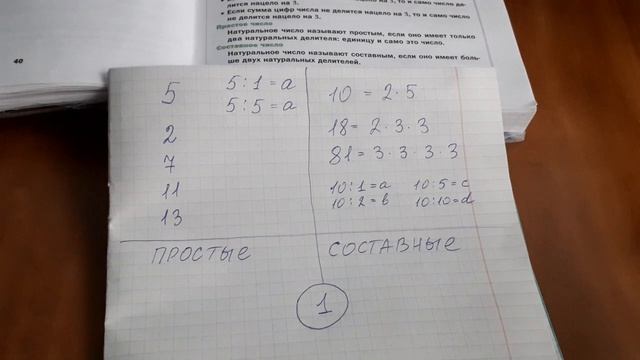 нацело на 3, то и само число де-
лится нацело на 3.
• Если сумма цифр числа не делится нацело на 3, то и само число
не делится нацело на 3.
Простое число
Натуральное число называют простым, если оно имеет только
два натуральных делителя: единицу и само это число.
Составное число
Натуральное число называют составным, если оно имеет боль-
ше двух натуральных делителей.
40
5
5:1=a
5:5=a
2
7
11
13
10 = 2·5
18= 2·3·3
81=3·3·3·3
10:1=a 10:5=c
10:2=b 10:10=d
ПРОСТЫЕ
СОСТАВНЫЕ
1